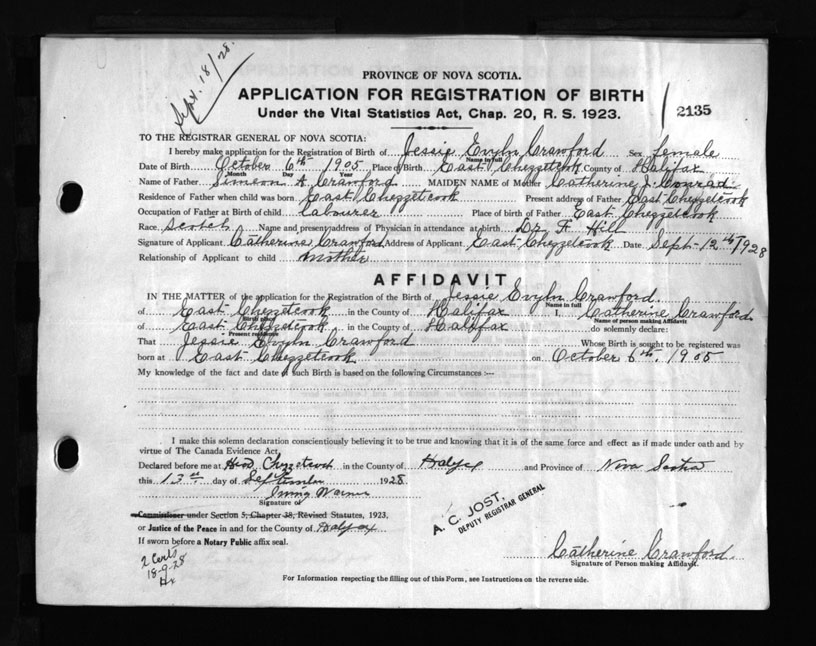 Sept. 18/28.
PROVINCE OF NOVA SCOTIA.
APPLICATION FOR REGISTRATION OF BIRTH
Under the Vital Statistics Act, Chap. 20, R. S. 1923.
2135
TO THE REGISTRAR GENERAL OF NOVA SCOTIA:
I hereby make application for the Registration of Birth of Jessie Evyln Crawford Sex female
Name in full
Date of Birth October 6th 1905 Place of Birth East Chezzetcook County of Halifax
Month Day Year
Name of Father Simson A Crawford MAIDEN NAME of Mother Catherine J. Conrad
Residence of Father when child was born East Chezzetcook Present address of Father East Chezzetcook
Occupation of Father at Birth of child labourer Place of birth of Father East Chezzetcook
Race Scotch Name and present address of Physician in attendance at birth Dr F Hill
Signature of Applicant Catherine Crawford Address of Applicant East Chezzetcook Date Sept-12th/1928
Relationship of Applicant to child mother
AFFIDAVIT
IN THE MATTER of the application for the Registration of the Birth of Jessie Evyln Crawford
Name in full
of East Chezzetcook in the County of Halifax I, Catherine Crawford
Birth place Name of person making Affidavit
of East Chezzetcook in the County of Halifax do solemnly declare:
Present residence
That Jessie Evyln Crawford Whose Birth is sought to be registered was
born at East Chezzetcook on October 6th, 1905
My knowledge of the fact and date of such Birth is based on the following Circumstances :—
I make this solemn declaration conscientiously believing it to be true and knowing that it is of the same force and effect as if made under oath and by
virtue of The Canada Evidence Act,
Declared before me at Head Chezzetcook in the County of Halifax and Province of Nova Scotia
this 13 day of September 1928
Signature of
Commissioner under Section 5, Chapter 38, Revised Statutes, 1923,
or Justice of the Peace in and for the County of Halifax
If sworn before a Notary Public affix seal.
A. C. JOST,
DEPUTY REGISTRAR GENERAL
2 Certs
18-9-28
Hx
Catherine Crawford
Signature of Person making Affidavit.
For Information respecting the filling out of this Form, see Instructions on the reverse side.